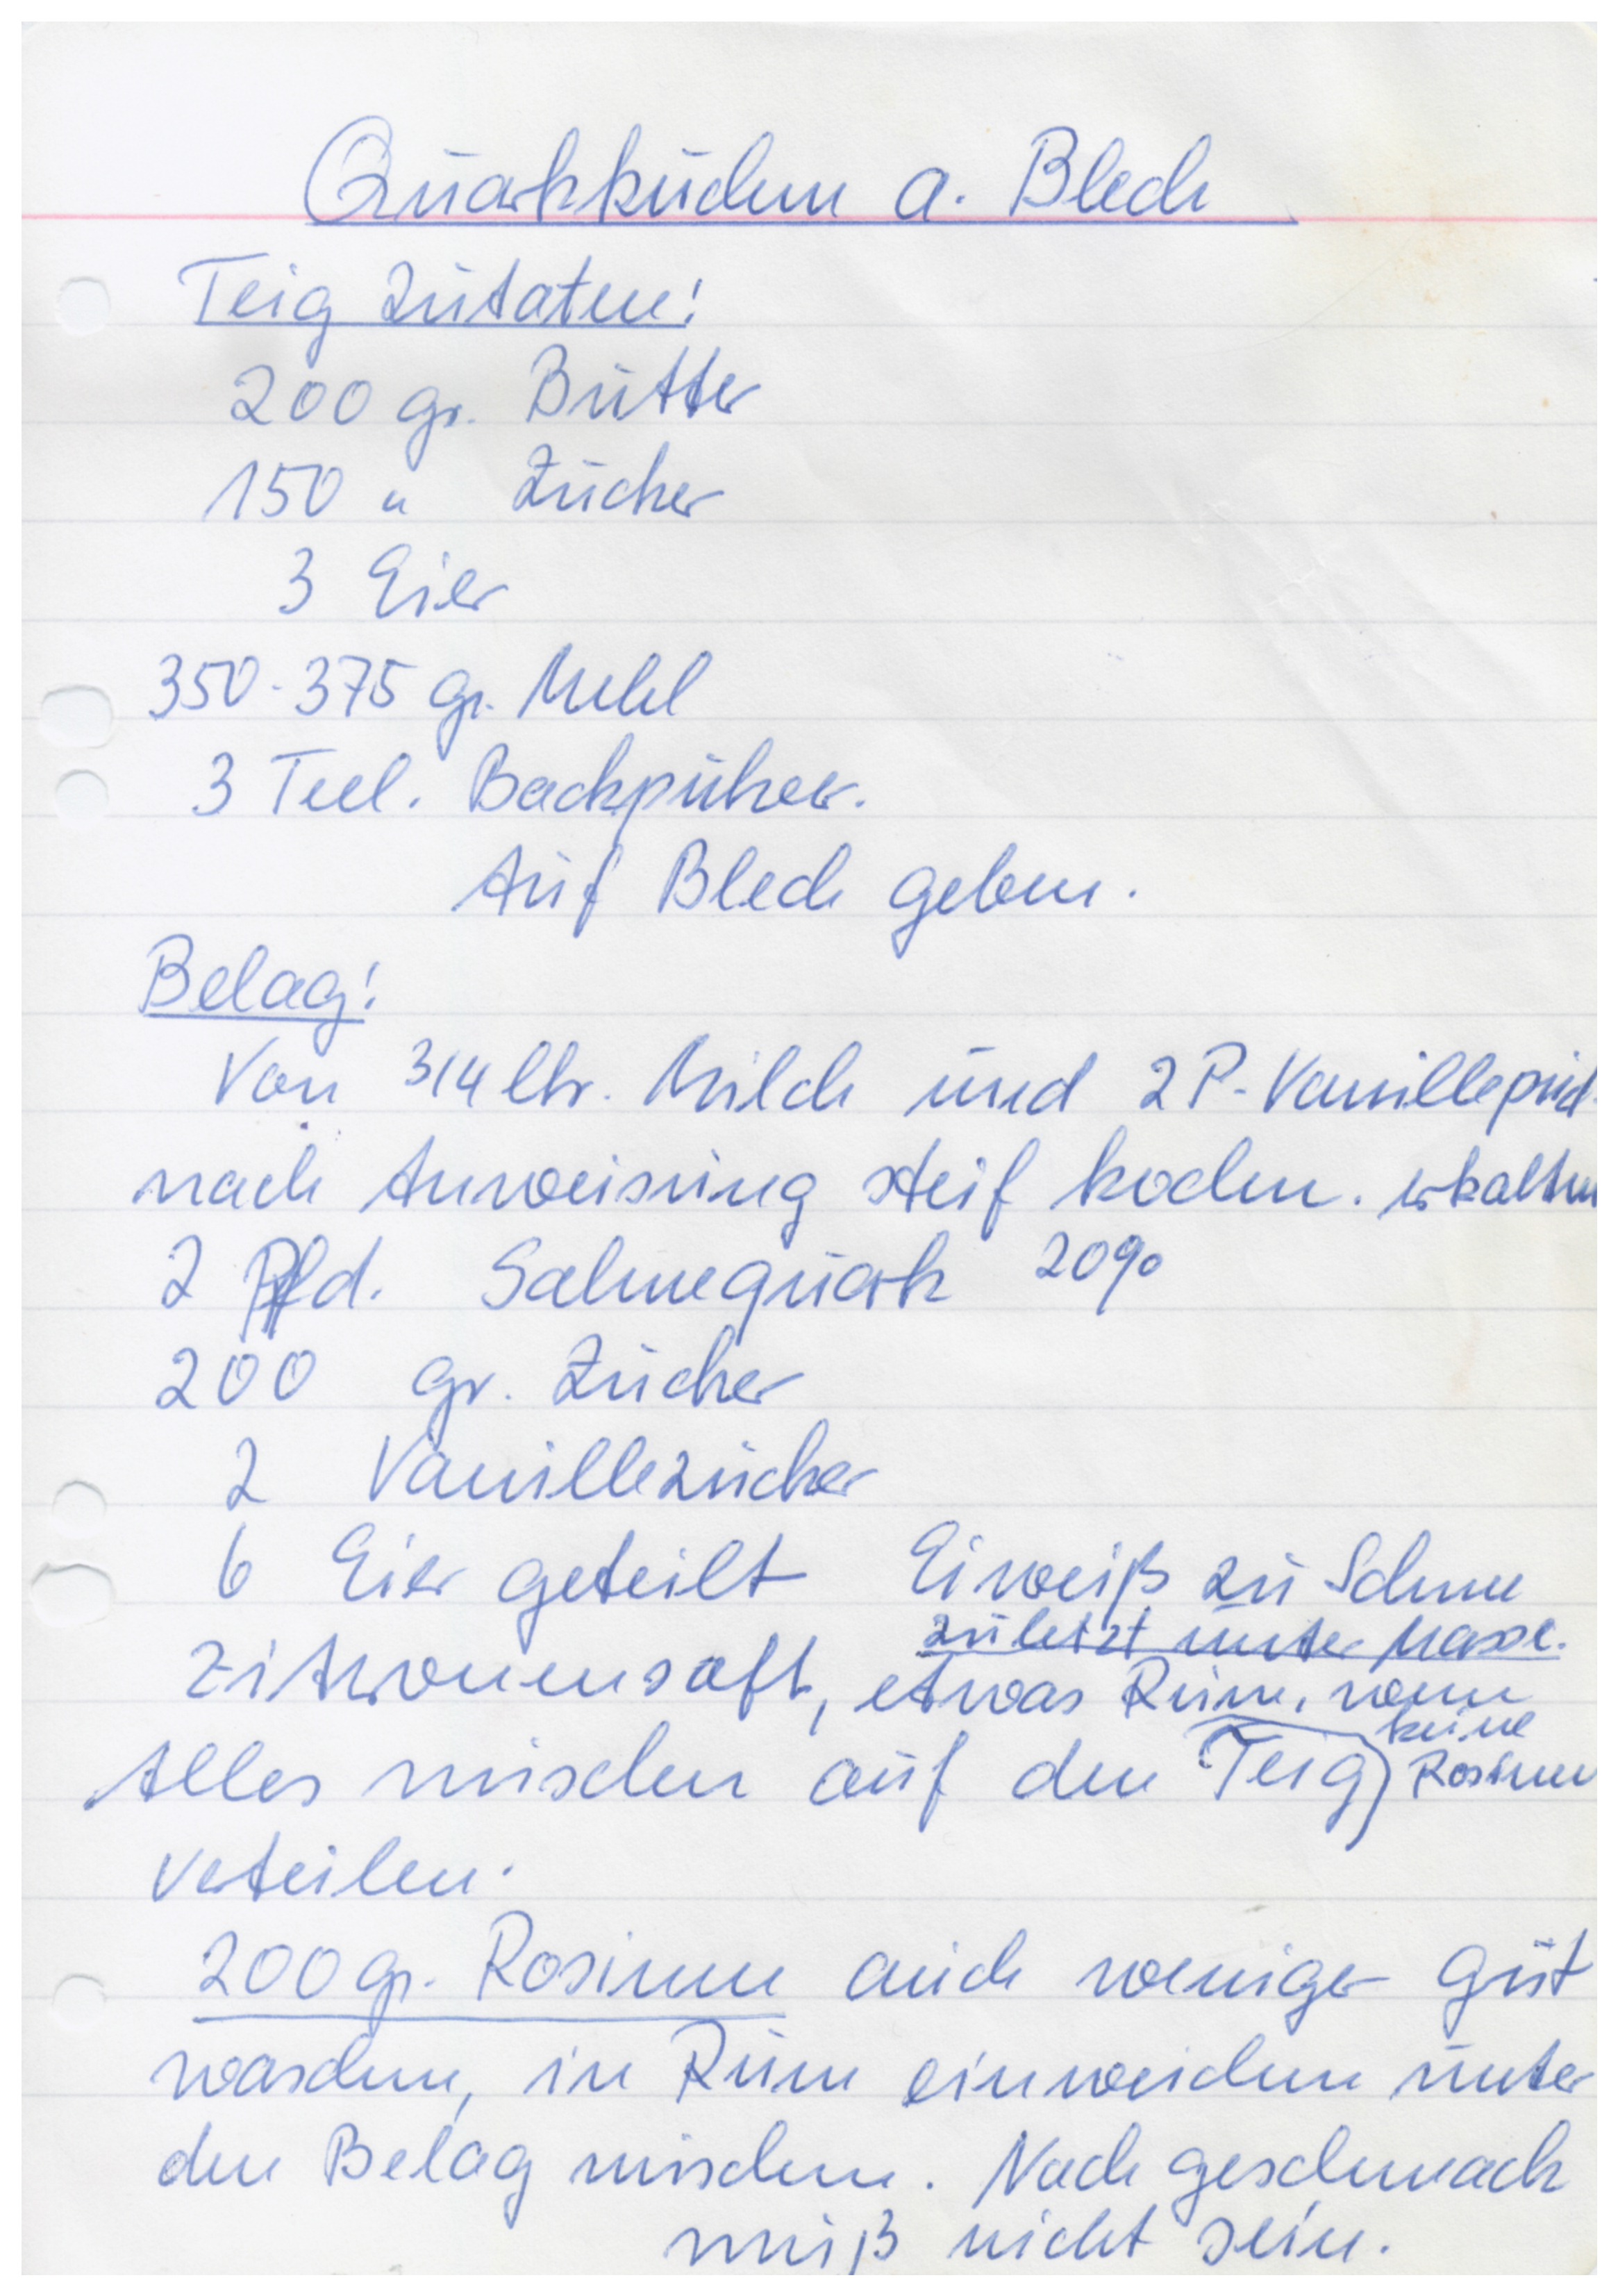 Quarkkuchen a. Blech
Teig Zutaten:
200 gr. Butter
150 " Zucker
3 Eier
350-375 gr. Mehl
3 Teel. Backpulver.
Auf Blech geben.
Belag:
Von 3/4 ltr. Milch und 2 P. Vanillepud
nach Anweisung steif kochen. erkalten
2 Pfd. Sahnequark 20%
200 gr. Zucker
2 Vanillezucker
6 Eier geteilt Eiweiß zu Schnee
zuletzt unter Masse.
Zitronensaft, etwas Rum, wenn
keine
Alles mischen auf den Teig) Rosinen
verteilen.
200 gr. Rosinen auch weniger gut
waschen, in Rum einweichen unter
den Belag mischen. Nach geschmack
muß nicht sein.